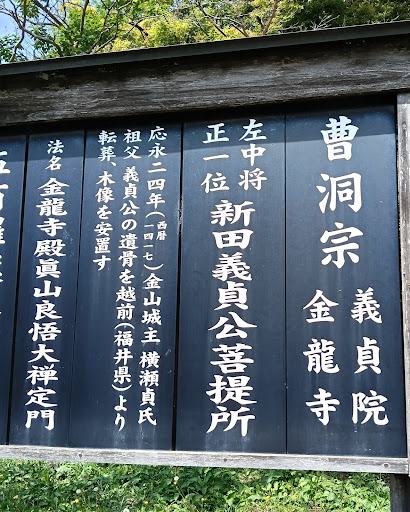 曹洞宗
義貞院
金龍寺
左中将
正一位
新田義貞公菩提所
応永二四年(西暦一四一七)金山城主 横瀬貞氏
祖父 義貞公の遺骨を越前(福井県)より
転葬、木像を安置す
法名 金龍寺殿眞山良悟大禅定門